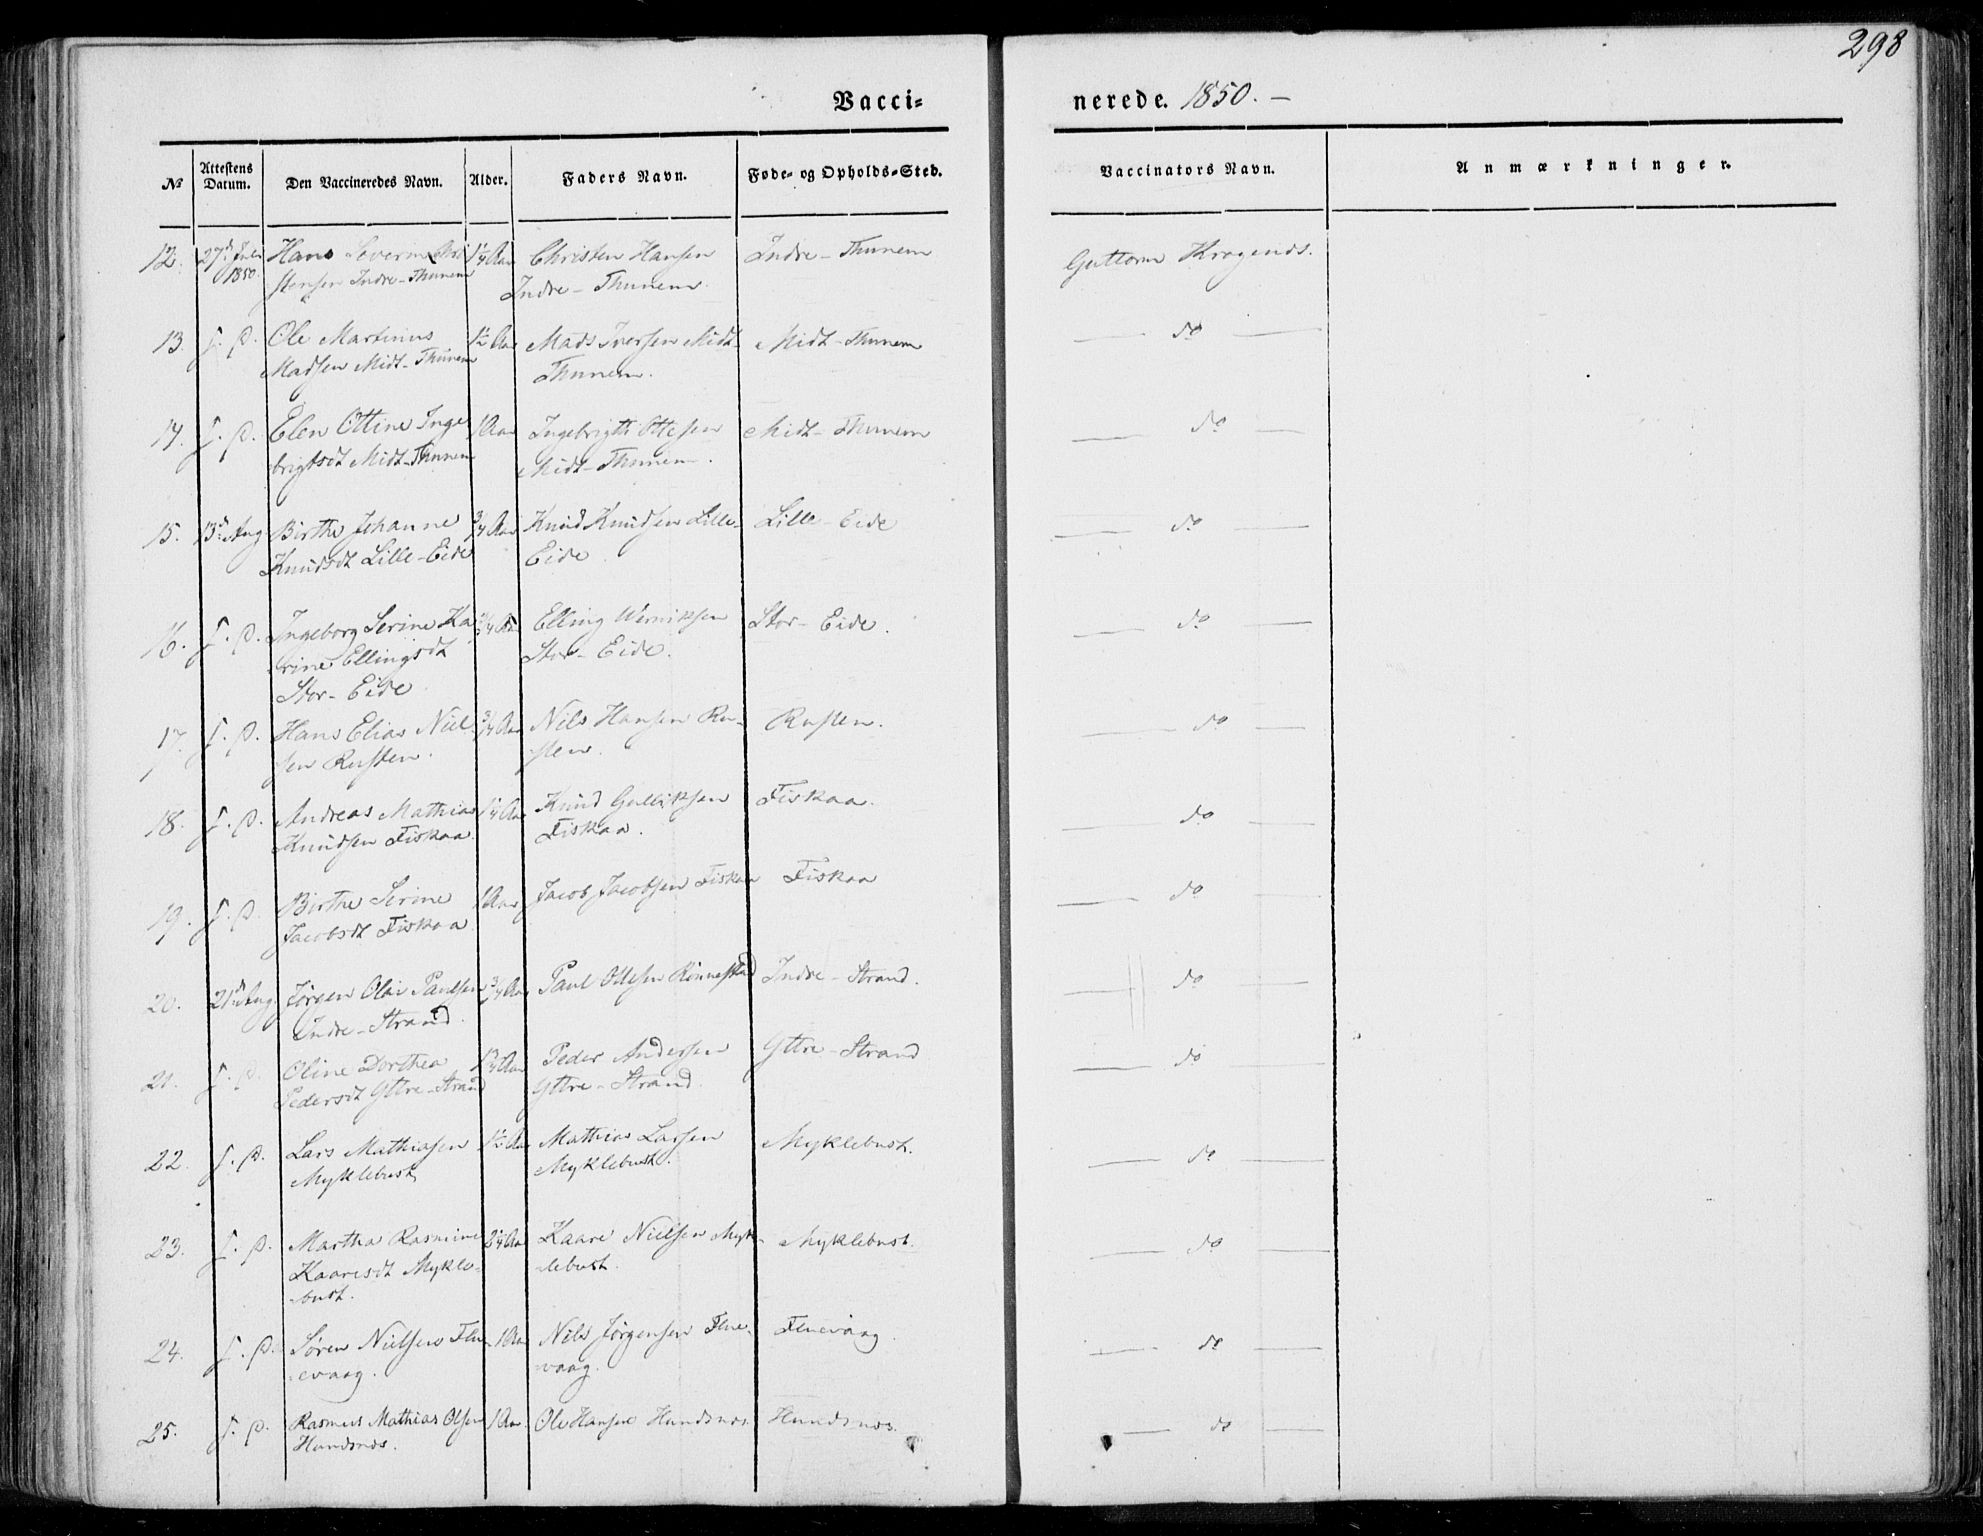 298
Vacci=
nerede. 1850. —
No
Attestens Datum.
Den Vaccineredes Navn.
Alder.
Faders Navn.
Føde- og Opholds-Sted.
Vaccinators Navn.
Anmærkninger.
12. 27d Juli 1¼ Aar Christen Hansen Indre-Thunem Guttorm
1850. stensen Indre-Thunem Indre-Thunem.
13. S. D. Ole Martinus 1½ Aar Mads Iversen Midt- Midt-Thunem do
Madsen Midt-Thunem Thunem.
14. S. D. Elen Ottine Inge 1 Aar Ingebrigth Ottesen Midt-Thunem do
brigtsdt Midt-Thunem Midt-Thunem.
15. 13d Aug Birthe Johanne ¾ Aar Knud Knudsen Lille- Lille-Eide do
Knudsdt Lille-Eide Eide.
16. S. D. Ingeborg Serine Ka ¾ Aar Elling Stor-Eide. do
rine Ellingsdt Stor-Eide.
Stor-Eide
17. S. D. Hans Elias Niel- ¾ Aar Nils Hansen Ru- Rusten. do
sen Rusten. sten.
18. S. D. Andreas Mathias 1¼ Aar Knud Gulliksen Fiskaa. do
Knudsen Fiskaa. Fiskaa.
19. S. D. Birthe Serine 1 Aar Jacob Jacobsen Fiskaa Fiskaa do
Jacobsdt Fiskaa
20. 21d Aug. Jørgen Olai Paulsen ¾ Aar Paul Ottesen Rønnestad Indre-Strand. do
Indre-Strand.
21. S. D. Oline Dorthea Aar Peder Andersen Yttre-Strand do
Pedersdt Yttre-Strand Yttre-Strand.
22. S. D. Lars Mathiasen 1½ Aar Mathias Larsen Myklebust. do
Myklebust Myklebust.
23. S. D. Martha Rasmine 2¼ Aar Kaare Nielsen Myk- Myklebust. do
Kaaresdt Mykle- lebust.
bust.
24. S. D. Søren Nielsen Flu- 1 Aar Nils Jørgensen Flue- Fluevaag. do
evaag. vaag.
25. S. D. Rasmus Mathias Olsen 1 Aar. Ole Hansen Hundsnæs Hundsnæs. do
Hundsnæs.